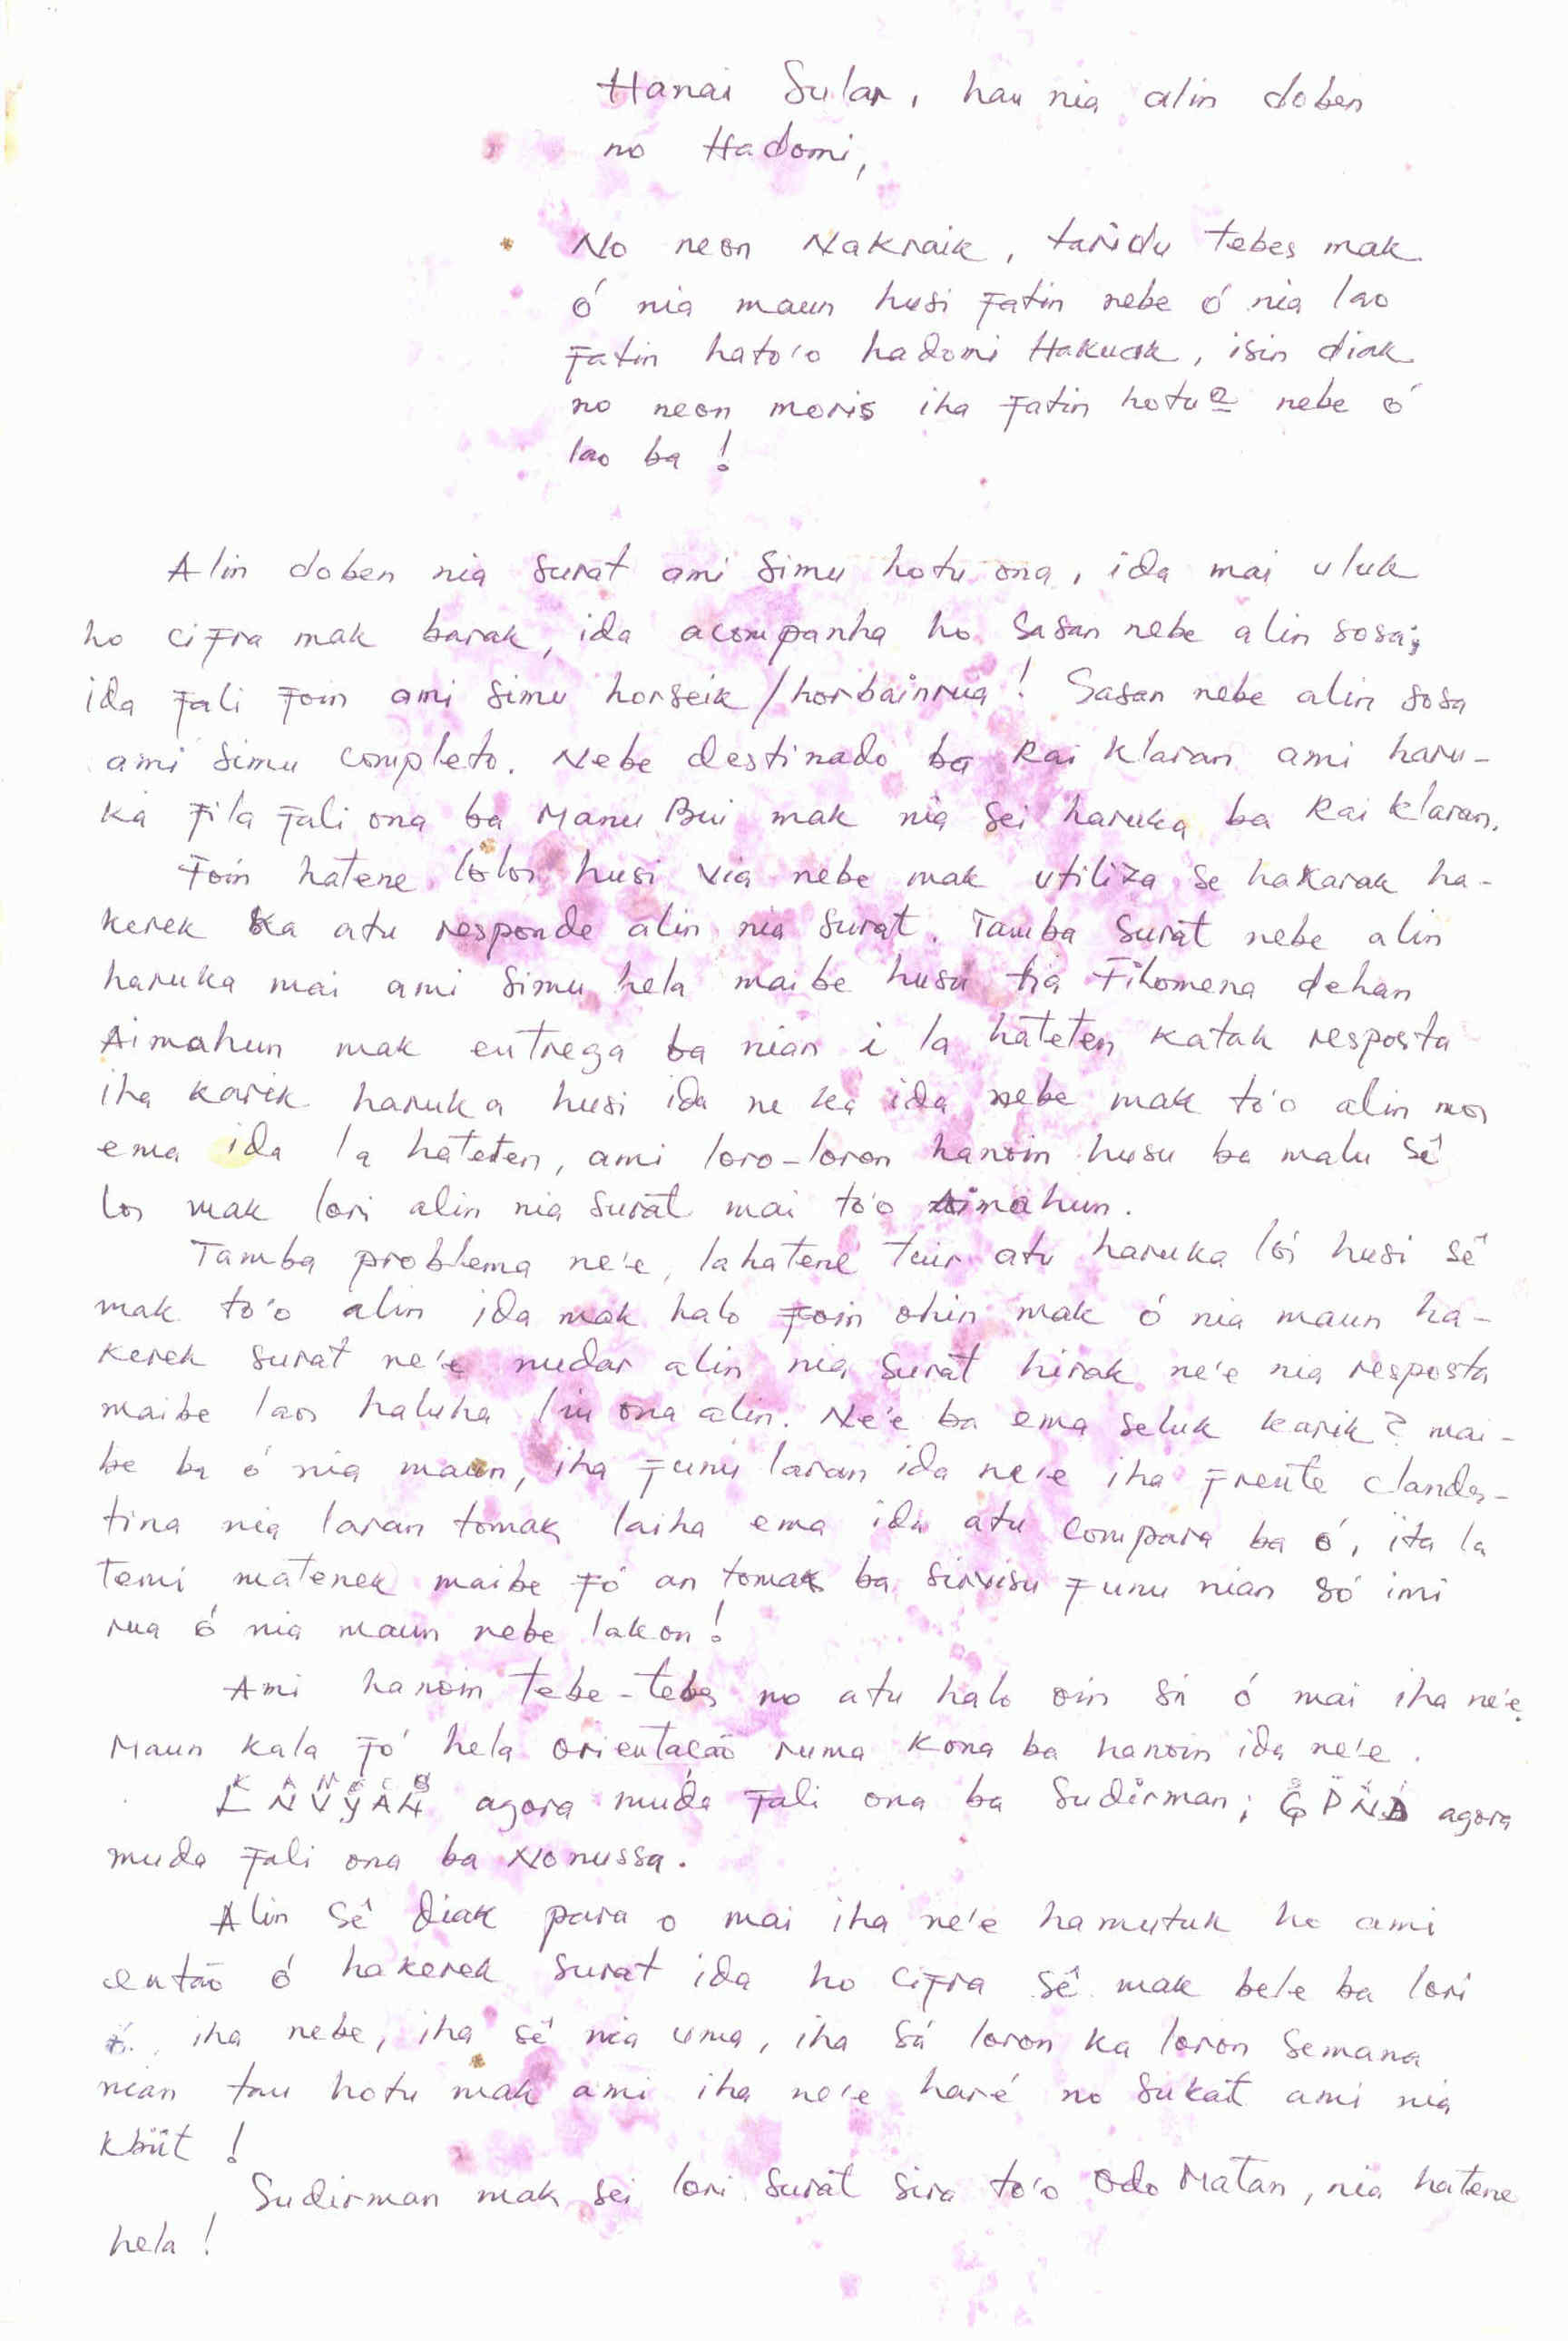 Hanai Sular, hau nia alin doben
no Hadomi,
No neon Nakraik, taridu tebes mak
ó nia maun husi fatin nebe ó nia lao
fatin hato'o hadomi Hakuak, isin diak
no neon moris iha fatin hotu2 nebe ó
lao ba !
Alin doben nia surat ami simu hotu ona, ida mai uluk
ho cifra mak barak, ida acompanha ho sasan nebe alin sosa;
ida fali foin ami simu horseik/horbainrua ! Sasan nebe alin sosa
ami simu completo. Nebe destinado ba Rai Klaran ami haru-
ka fila fali ona ba Manu Bui mak nia sei haruka ba Rai Klaran.
Foin hatene lolos husi via nebe mak utiliza se hakarak ha-
kerek ka atu responde alin nia surat. Tamba surat nebe alin
haruka mai ami simu hela maibe husu tia Filomena dehan
Aimahun mak entrega ba nian i la hateten katak resposta
iha karik haruka husi ida ne ka ida nebe mak to'o alin mos
ema ida la hateten, ami loro-loron hanoin husu ba malu sê
los mak lori alin nia surat mai to'o Aimahun.
Tamba problema ne'e, lahatene tuir atu haruka loi husi sê
mak to'o alin ida mak halo foin ohin mak ó nia maun ha-
kerek surat ne'e nudar alin nia surat hirak ne'e nia resposta
maibe laos haluha liu ona alin. Ne'e ba ema seluk karik? mai-
be ba ó nia maun, iha funu laran ida ne'e iha frente clandes-
tina nia laran tomak laiha ema ida atu compara ba ó, ita la
temi matenek maibe fó an tomak ba sirvisu funu nian só imi
rua ó nia maun nebe lakon !
Ami hanoin tebe-tebes no atu halo oin sá ó mai iha ne'e.
Maun kala fó hela orientação ruma kona ba hanoin ida ne'e.
agora muda fali ona ba Sudirman; agora
muda fali ona ba Nonussa.
Alin sê diak para o mai iha ne'e hamutuk ho ami
então ó hakerek surat ida ho cifra sê mak bele ba lori
ó, iha nebe, iha sê nia uma, iha sá loron ka loron semana
nian tau hotu mak ami iha ne'e haré no sukat ami nia
kbiit !
Sudirman mak sei lori surat sira to'o Odo Matan, nia hatene
hela !